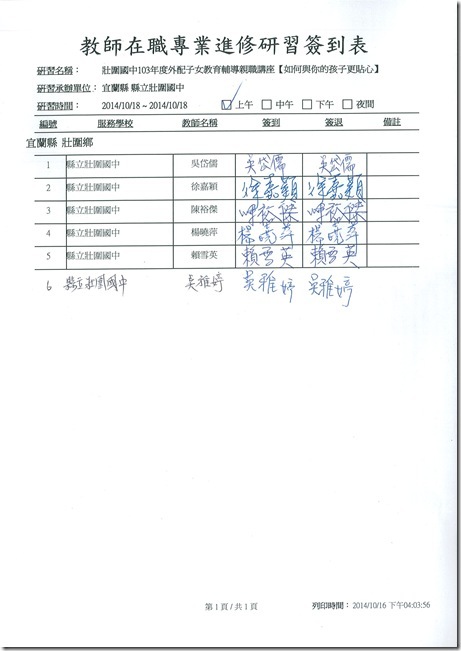 教師在職專業進修研習簽到表
研習名稱： 壯圍國中103年度外配子女教育輔導親職講座【如何與你的孩子更貼心】
研習承辦單位： 宜蘭縣 縣立壯圍國中
研習時間： 2014/10/18 ~ 2014/10/18 上午 中午 下午 夜間
編號 服務學校 教師名稱 簽到 簽退 備註
宜蘭縣 壯圍鄉
1 縣立壯圍國中 吳岱儒 吳岱儒 吳岱儒
2 縣立壯圍國中 徐嘉穎 徐嘉穎 徐嘉穎
3 縣立壯圍國中 陳裕傑 陳裕傑 陳裕傑
4 縣立壯圍國中 楊曉萍 楊曉萍 楊曉萍
5 縣立壯圍國中 賴雪英 賴雪英 賴雪英
6 縣立壯圍國中 吳雅婷 吳雅婷 吳雅婷
第 1 頁 / 共 1 頁 列印時間： 2014/10/16 下午04:03:56